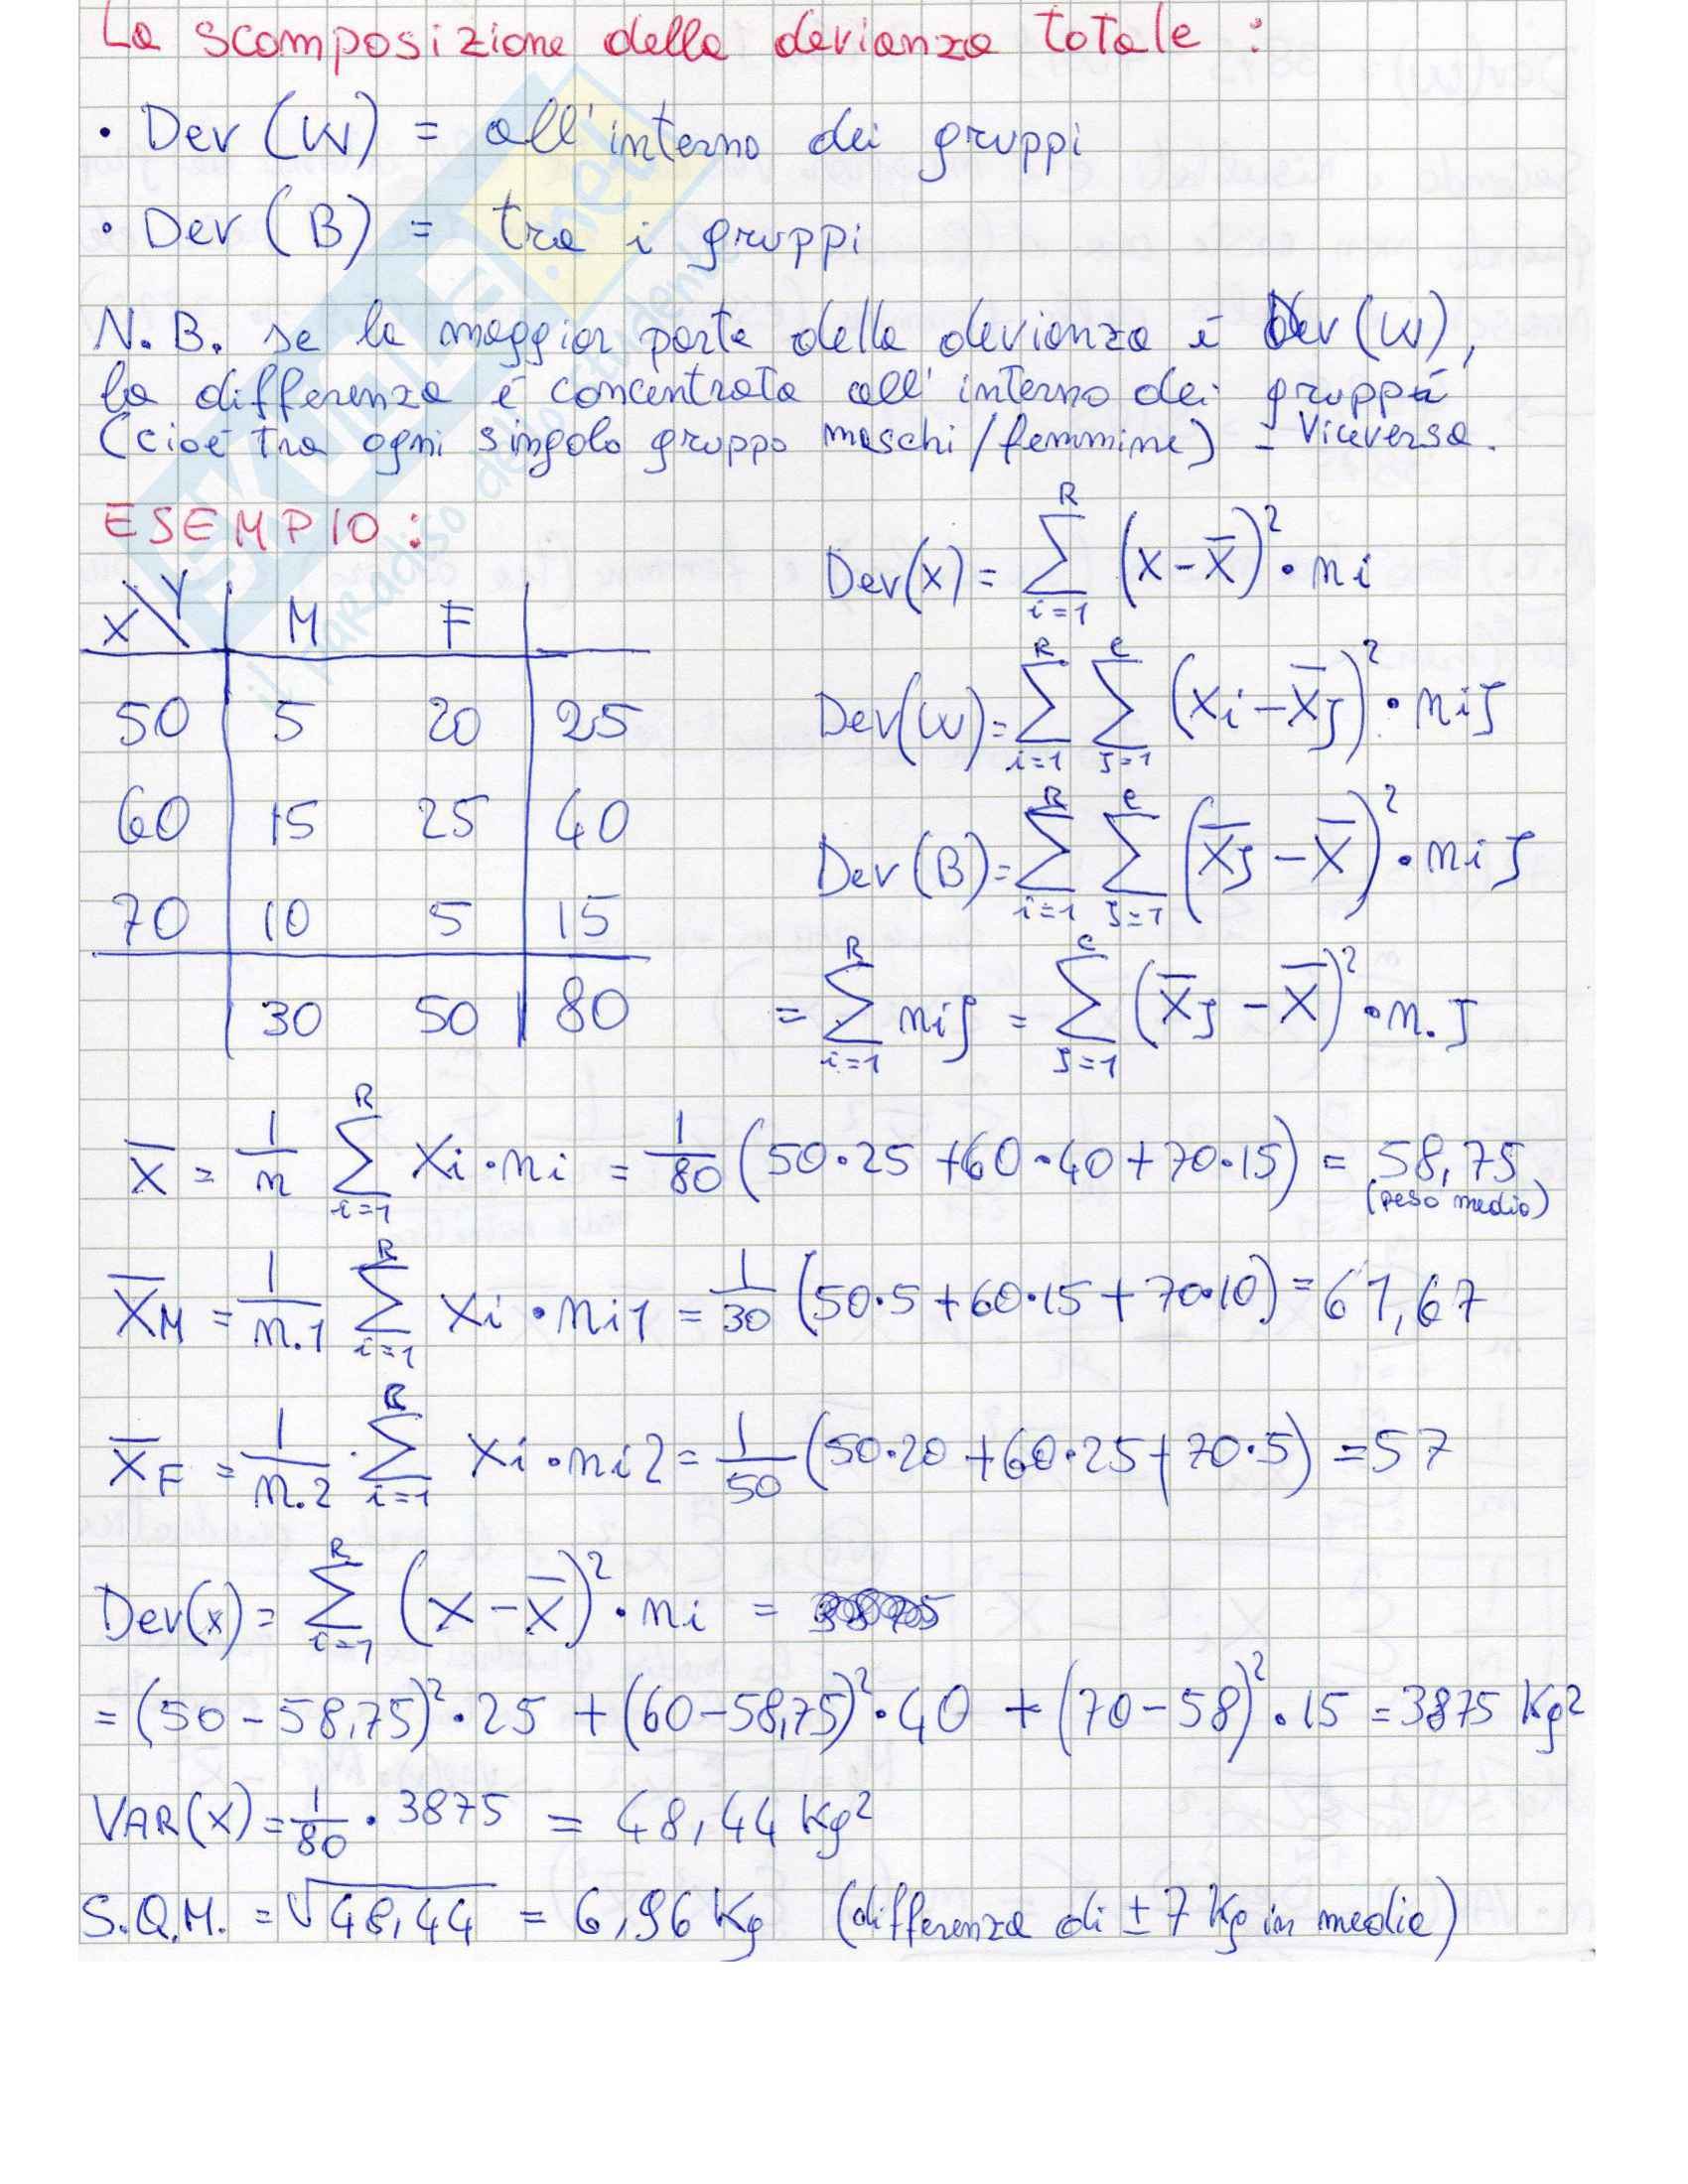 La scomposizione della devianza totale :
• Dev (W) = all'interno dei gruppi
• Dev (B) = tra i gruppi
N.B. se la maggior parte della devianza è Dev (W),
la differenza è concentrata all'interno dei gruppi
(cioè tra ogni singolo gruppo maschi/femmine) - Viceversa.
ESEMPIO:
X\Y | M F |
50 | 5 20 | 25
60 | 15 25 | 40
70 | 10 5 | 15
| 30 50 | 80
Dev(x) = ∑_{i=1}^{R} (x - x̄)² • ni
Dev(W) = ∑_{i=1}^{R} ∑_{J=1}^{C} (Xi - X̄J)² • niJ
Dev(B) = ∑_{i=1}^{R} ∑_{J=1}^{C} (X̄J - X̄)² • niJ
= ∑_{i=1}^{R} niJ = ∑_{J=1}^{C} (X̄J - X̄)² • n.J
X̄ = 1/n ∑_{i=1}^{R} Xi • ni = 1/80 (50•25 + 60•40 + 70•15) = 58,75
(peso medio)
X̄M = 1/n.1 ∑_{i=1}^{R} Xi • ni1 = 1/30 (50•5 + 60•15 + 70•10) = 61,67
X̄F = 1/n.2 • ∑_{i=1}^{R} Xi • ni2 = 1/50 (50•20 + 60•25 + 70•5) = 57
Dev(x) = ∑_{i=1}^{R} (x - x̄)² • ni =
= (50 - 58,75)² • 25 + (60 - 58,75)² • 40 + (70 - 58)² • 15 = 3875 Kg²
VAR(X) = 1/80 • 3875 = 48,44 Kg²
S.Q.M. = √48,44 = 6,96 Kg (differenza di ± 7 Kg in media)
SKUOLA.net
il paradiso dello studente